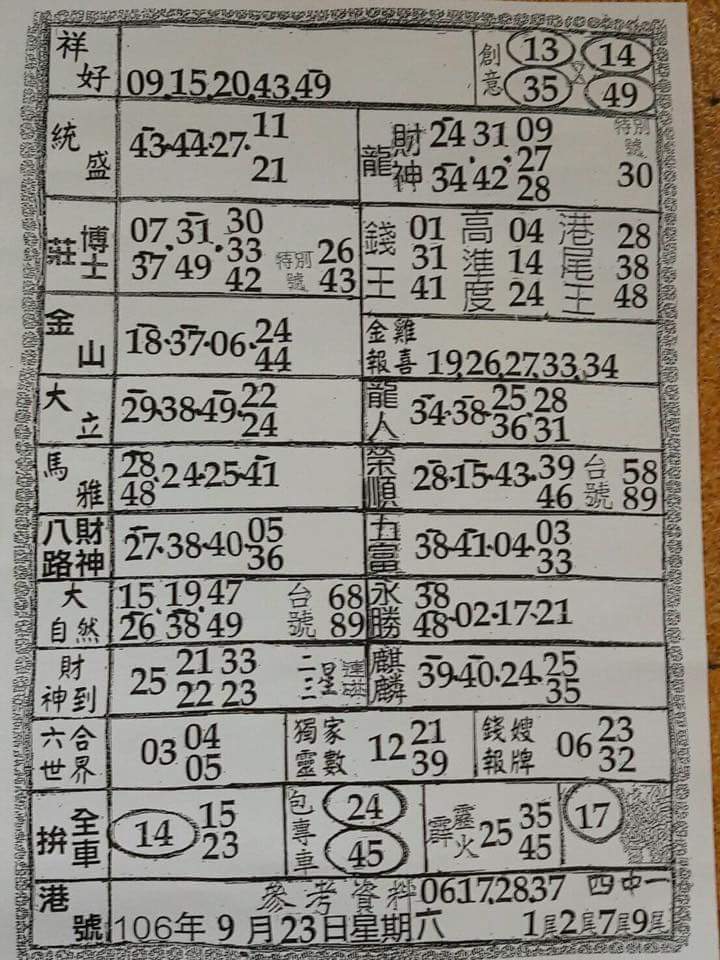 祥好 09.15.20.43.49 創意 13 14 35 49
統盛 43.44.27. 11 21
龍 財神 24 31 09 34.42 27 28 特別號 30
莊 博士 07 31 30 37 49 33 42 特別號 26 43
錢王 01 31 41 高進度 04 14 24 港尾王 28 38 48
金山 18.37.06. 24 44
金雞報喜 19,26,27,33,34
大立 29.38.49. 22 24
龍人 34.38. 25.28 36 31
馬雅 28 48 .24.25.41
榮順 28.15.43. 39 46 台號 58 89
八路財神 27.38.40. 05 36
五富 38.41.04. 03 33
大自然 15 19 47 26 38 49 台號 68 89
永勝 38 48 .02.17.21
財神到 25 21 33 22 23 二三星連碰
麒麟 39.40.24. 25 35
六合世界 03 04 05
獨家靈數 12 21 39
錢嫂報牌 06 23 32
拚全車 14 15 23
包專車 24 45
霹靂火 25 35 45
17
港號 參考資料 06.17.28.37 四中一
106年9月23日星期六 1尾2尾7尾9尾